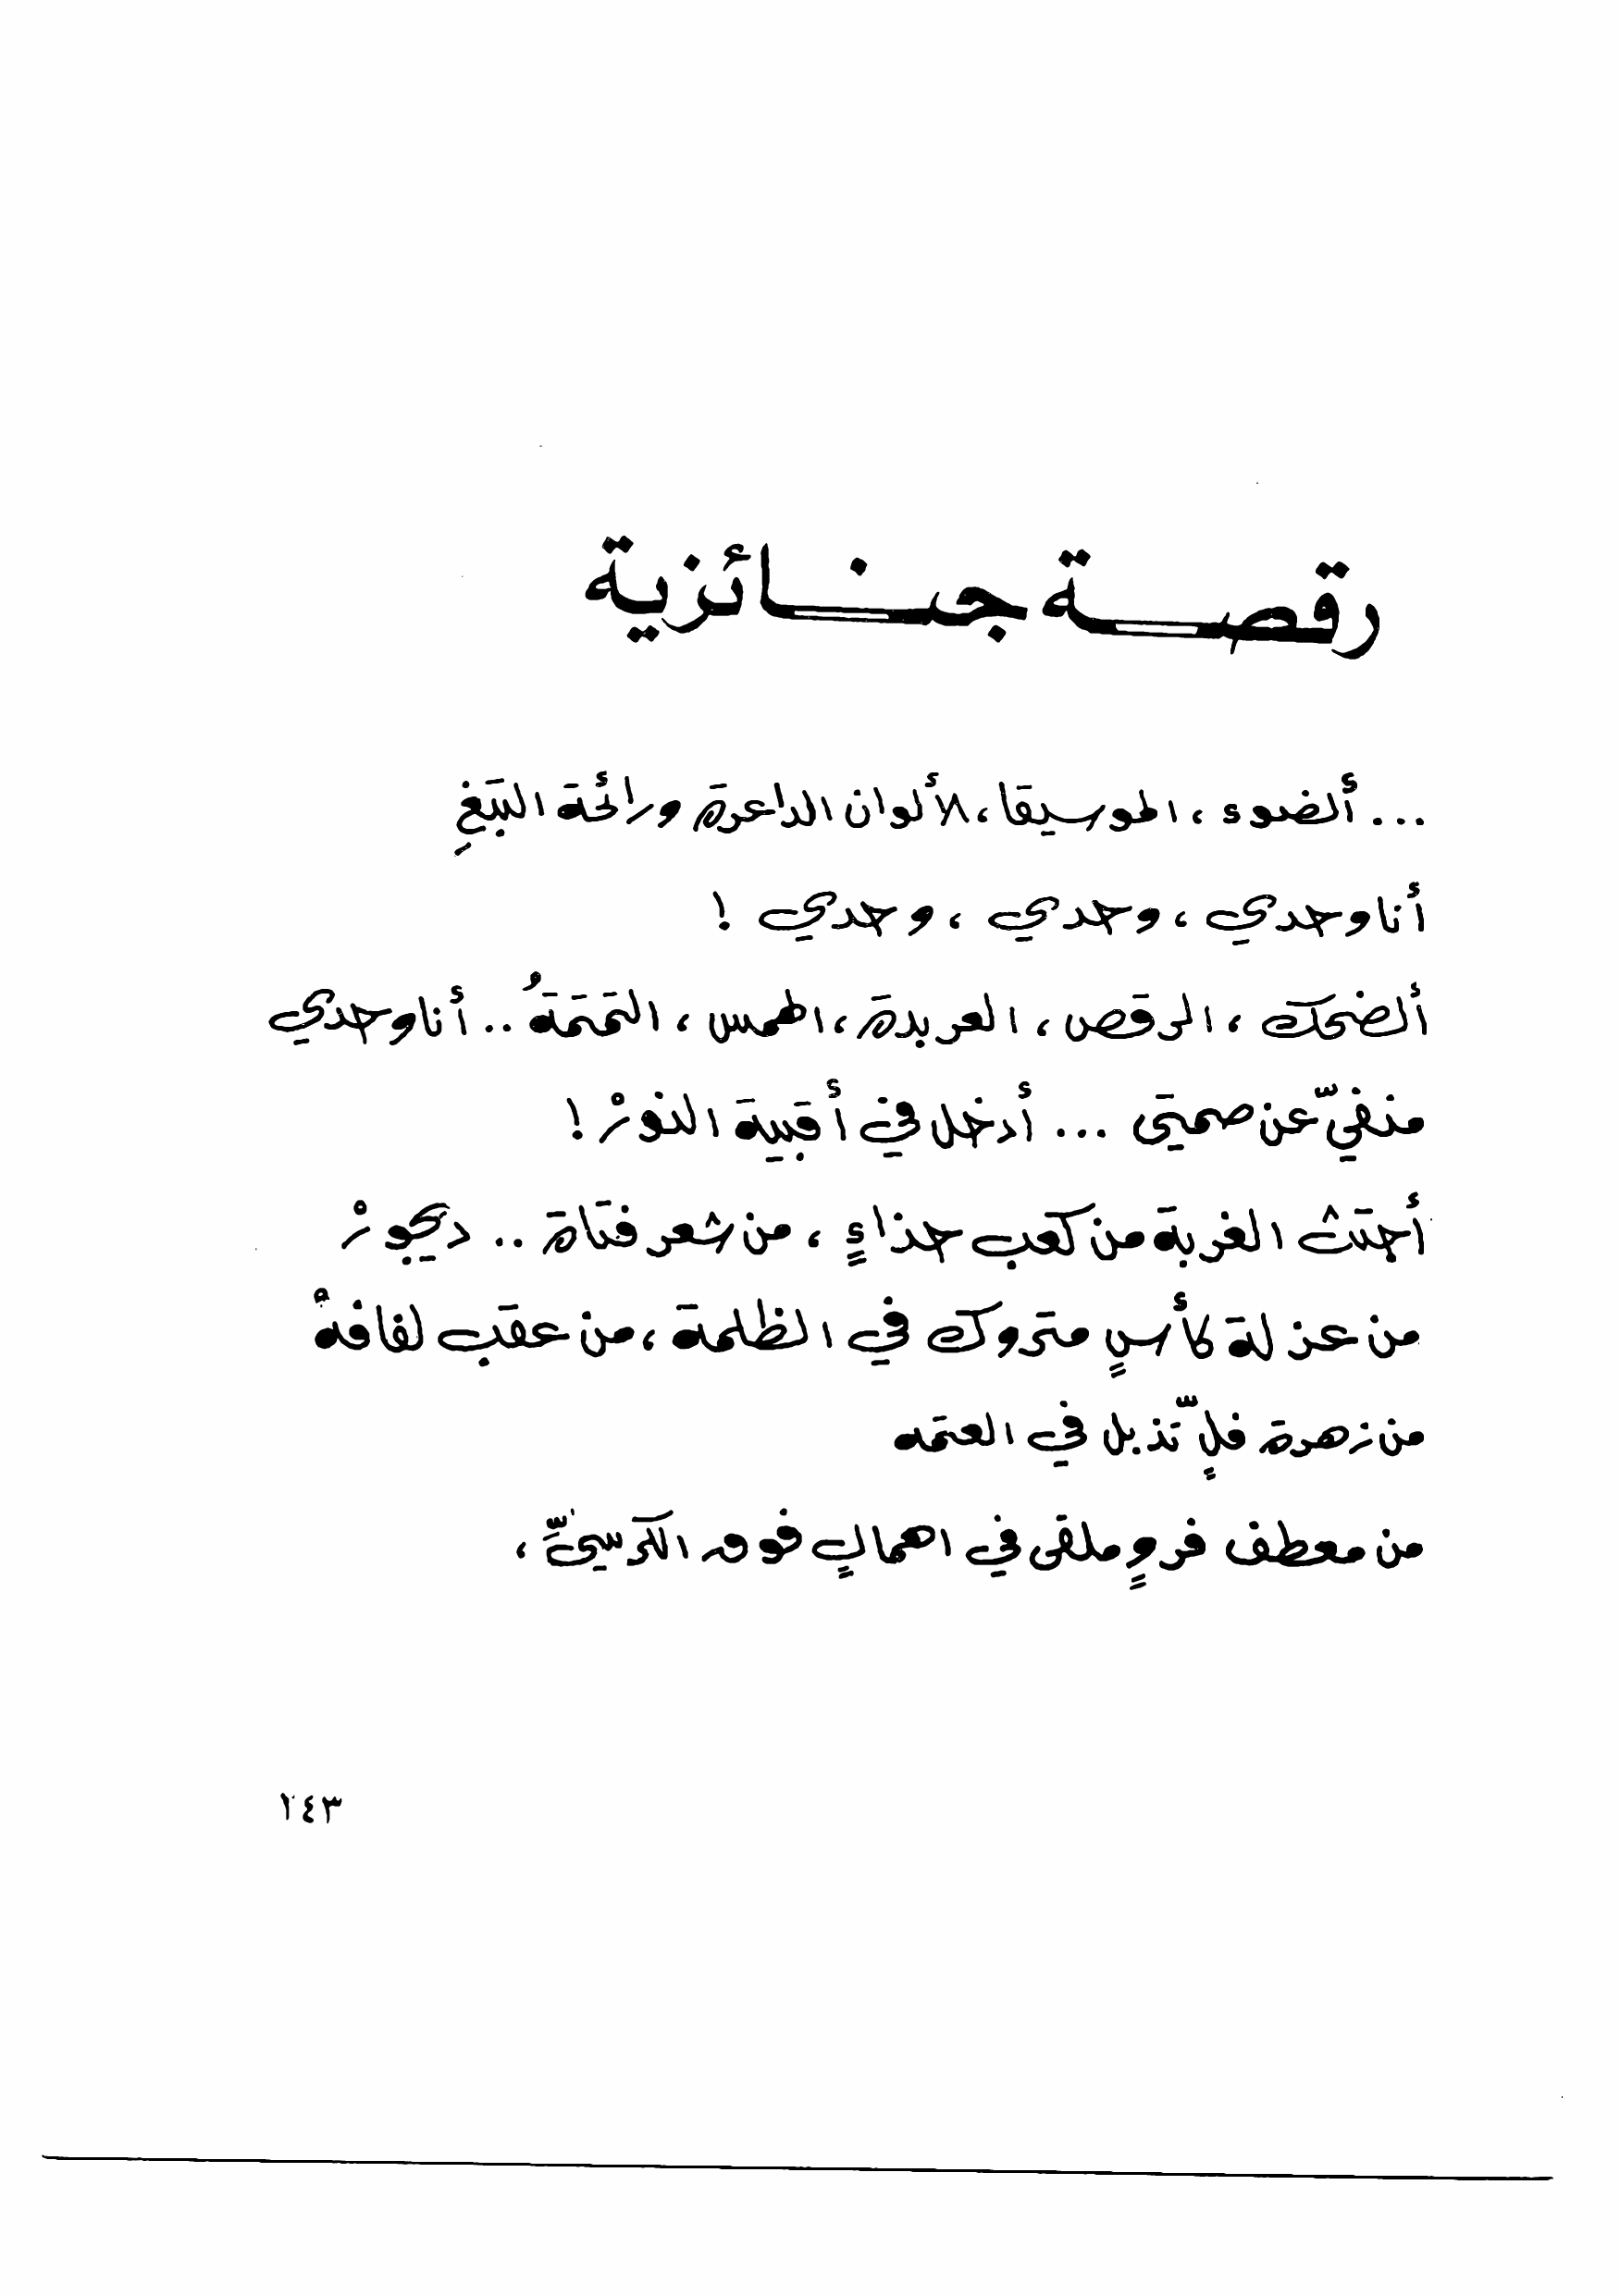 رقصة جنائزية
... ألضوء ، الموسيقا ، الألوان الداعرة ورائحة التبغِ
أنا وحدي ، وحدي ، وحدي !
ألضحك ، الرقص ، العربدة ، الهمس ، التمتمةُ .. أنا وحدي
منفيّ عن صمتي ... أدخل في أقبية النورْ !
أجتث الغربة من كعب حذاءٍ ، من شعر فتاة .. ديجورْ
من عزلة كأسٍ متروك في الظلمة ، من عقب لفافهْ
من زهرة فلٍّ تذبل في العتمه
من معطف فروٍ ملقى في اهمالٍ فوق الكرسيِّ ،
١٤٣